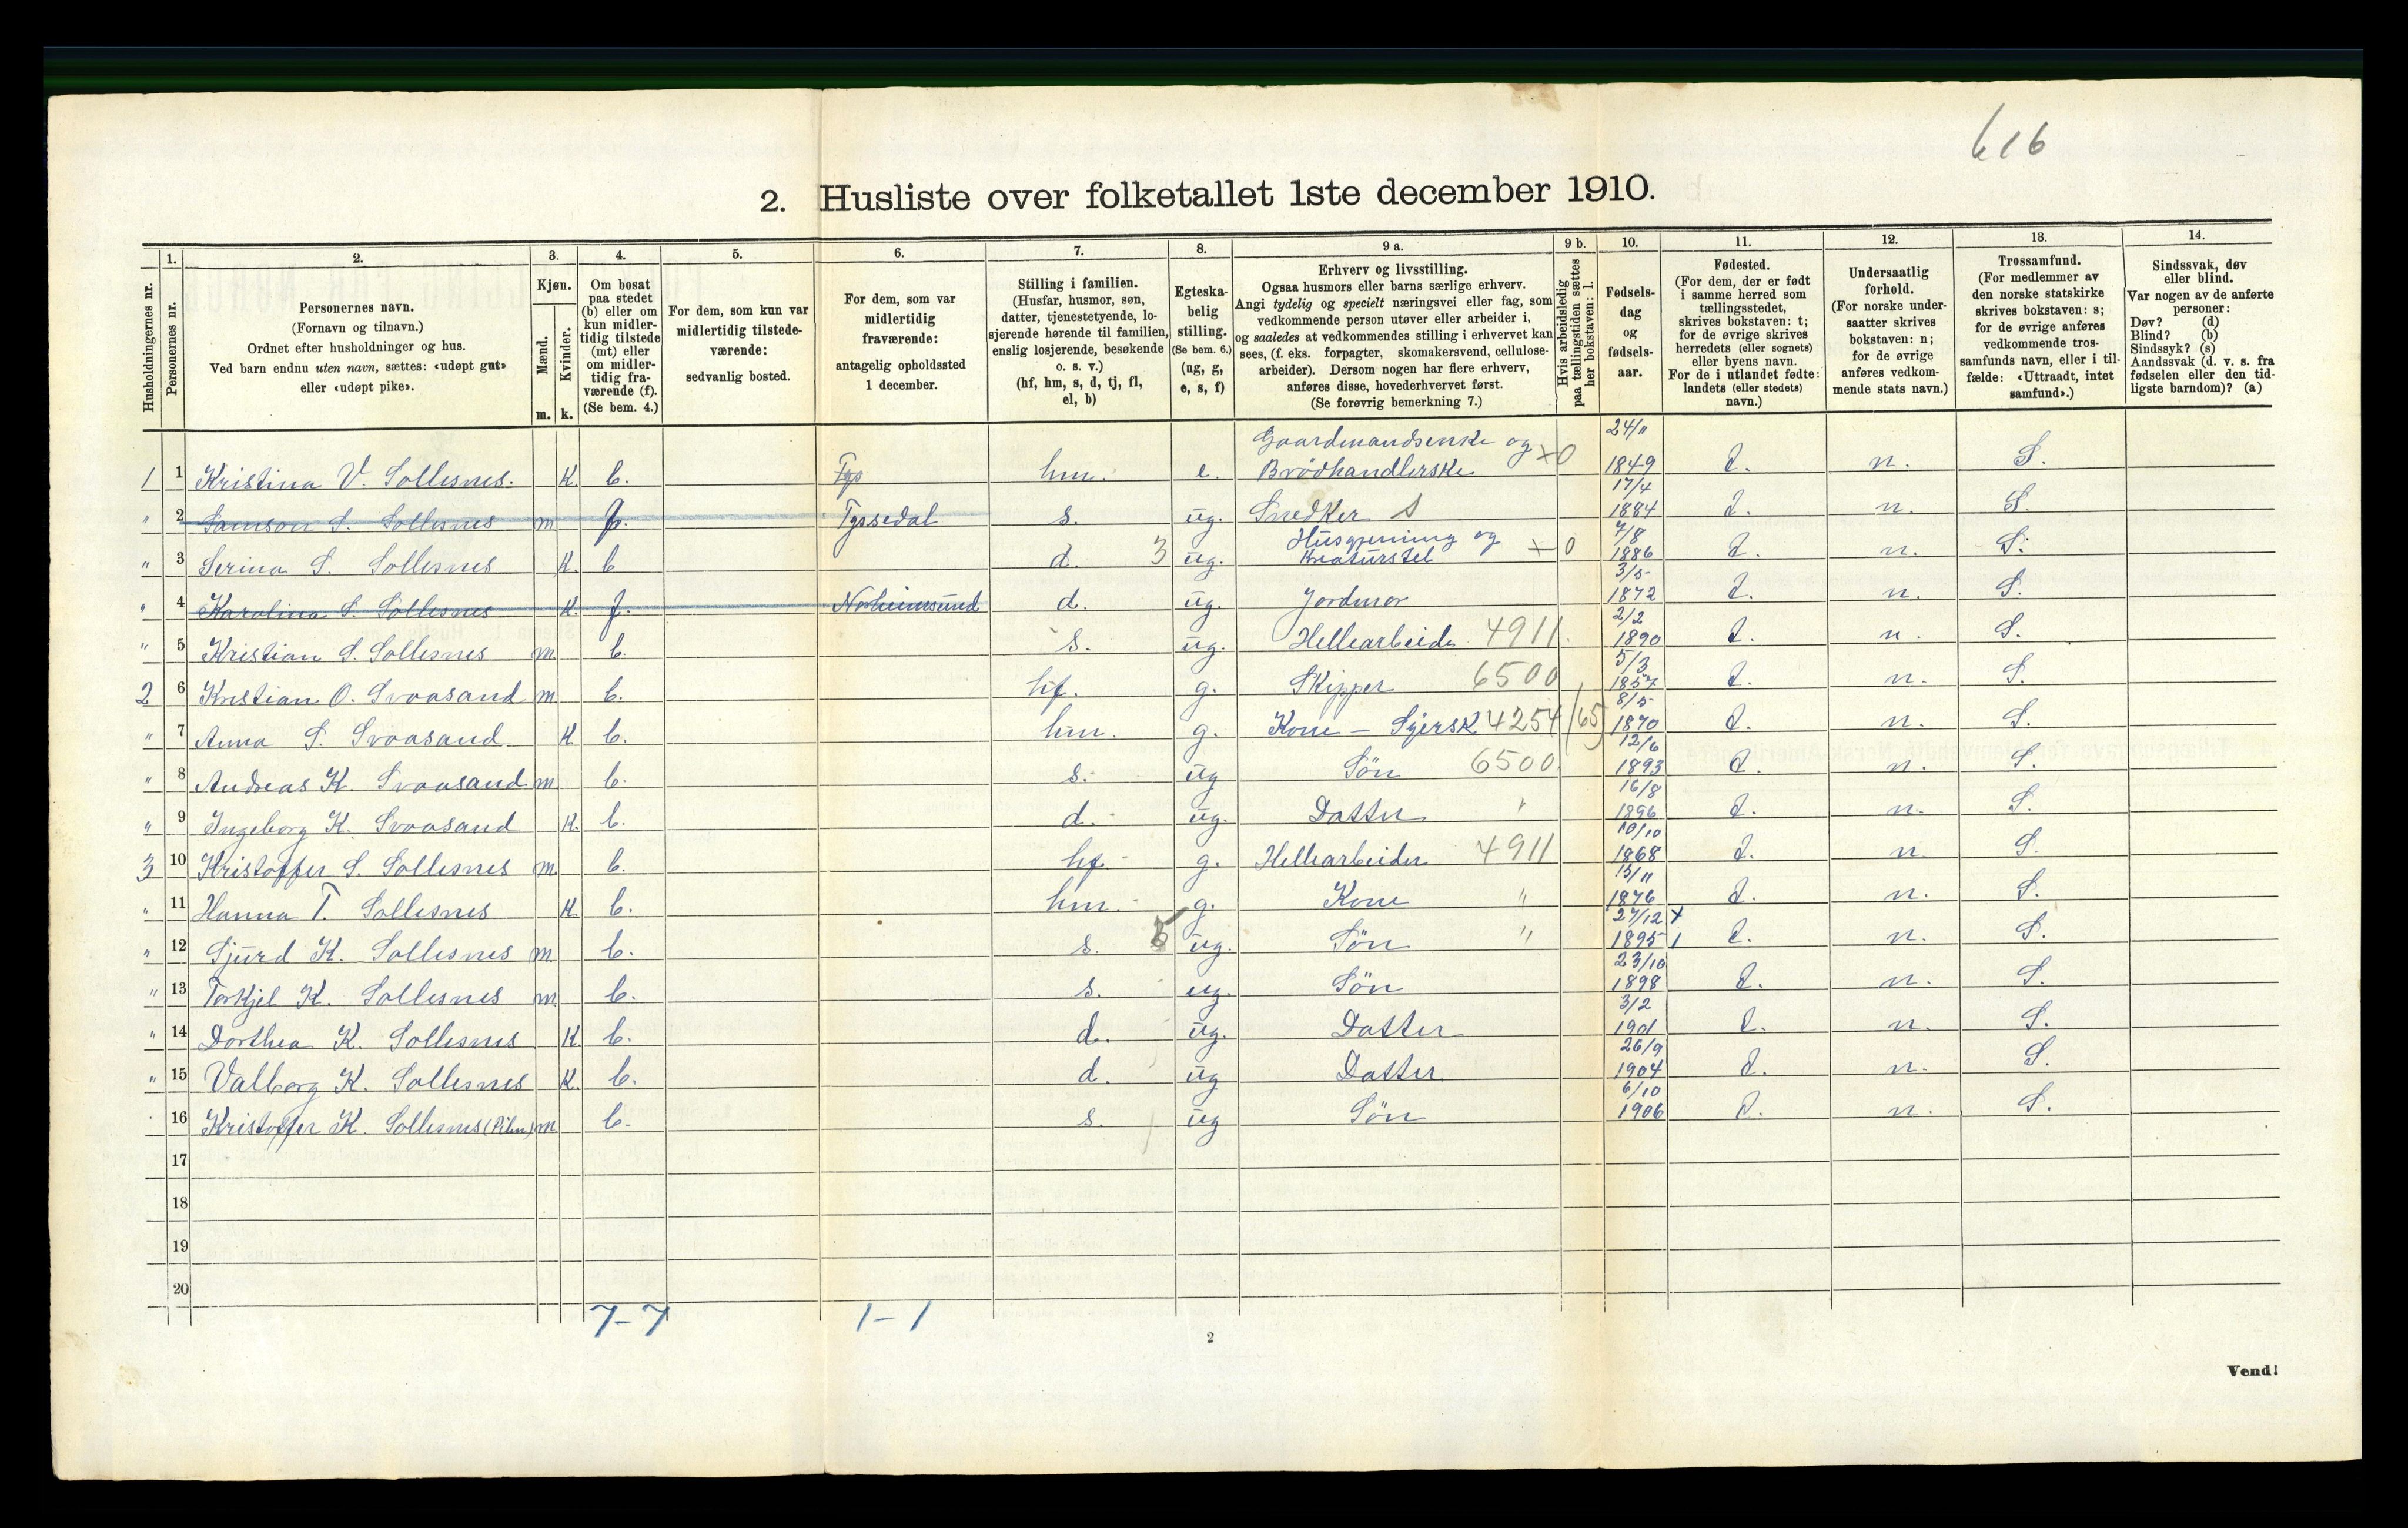 616
2. Husliste over folketallet 1ste december 1910.
Husholdningernes nr.
1. Personernes nr.
2. Personernes navn.
(Fornavn og tilnavn.)
Ordnet efter husholdninger og hus.
Ved barn endnu uten navn, sættes: «udøpt gut»
eller «udøpt pike».
3. Kjøn.
Mænd. m.
Kvinder. k.
4. Om bosat
paa stedet
(b) eller om
kun midler-
tidig tilstede
(mt) eller
om midler-
tidig fra-
værende (f).
(Se bem. 4.)
5. For dem, som kun var
midlertidig tilstede-
værende:
sedvanlig bosted.
6. For dem, som var
midlertidig
fraværende:
antagelig opholdssted
1 december.
7. Stilling i familien.
(Husfar, husmor, søn,
datter, tjenestetyende, lo-
sjerende hørende til familien,
enslig losjerende, besøkende
o. s. v.)
(hf, hm, s, d, tj, fl,
el, b)
8. Egteska-
belig
stilling.
(Se bem. 6.)
(ug, g,
e, s, f)
9 a. Erhverv og livsstilling.
Ogsaa husmors eller barns særlige erhverv.
Angi tydelig og specielt næringsvei eller fag, som
vedkommende person utøver eller arbeider i,
og saaledes at vedkommendes stilling i erhvervet kan
sees, (f. eks. forpagter, skomakersvend, cellulose-
arbeider). Dersom nogen har flere erhverv,
anføres disse, hovederhvervet først.
(Se forøvrig bemerkning 7.)
9 b. Hvis arbeidsledig
paa tællingstiden sættes
her bokstaven: l.
10. Fødsels-
dag
og
fødsels-
aar.
11. Fødested.
(For dem, der er født
i samme herred som
tællingsstedet,
skrives bokstaven: t;
for de øvrige skrives
herredets (eller sognets)
eller byens navn.
For de i utlandet fødte:
landets (eller stedets)
navn.)
12. Undersaatlig
forhold.
(For norske under-
saatter skrives
bokstaven: n;
for de øvrige
anføres vedkom-
mende stats navn.)
13. Trossamfund.
(For medlemmer av
den norske statskirke
skrives bokstaven: s;
for de øvrige anføres
vedkommende tros-
samfunds navn, eller i til-
fælde: «Uttraadt, intet
samfund».)
14. Sindssvak, døv
eller blind.
Var nogen av de anførte
personer:
Døv? (d)
Blind? (b)
Sindssyk? (s)
Aandssvak (d. v. s. fra
fødselen eller den tid-
ligste barndom)? (a)
1 1 Kristina V. Sollesnes. K. b. Tys hm. e. Gaardmandsenke og Brødhandlerske x0 24/11 1849 t. n. S.
" 2 Samson S. Sollesnes m f. Tyssedal s. ug. Snedker s 17/4 1884 t. n. S.
" 3 Serina S. Sollesnes K. b d. 3 ug. Husgjerning og Kreaturstel x0 7/8 1886 t. n. S.
" 4 Karolina S. Sollesnes K. f. Norheimsund d. ug. Jordmor 3/5 1872 t. n. S.
" 5 Kristian S. Sollesnes m. b. s. ug. Hellearbeide 4911. 2/2 1890 t. n. S.
2 6 Kristian O. Svaasand m b. hf. g. Skipper 6500 5/3 1857 t. n. S.
" 7 Anna S. Svaasand K b. hm. g. Kone - Syersk 4254/65 8/5 1870 t. n. S.
" 8 Andreas K. Svaasand m b. s. ug Søn 6500. 12/6 1893 t. n. S.
" 9 Ingeborg K. Svaasand K. b. d. ug. Datter " 16/8 1896 t. n. S.
3 10 Kristoffer S. Sollesnes m. b. hf. g. Hellearbeider 4911 10/10 1868 t. n. S.
" 11 Hanna T. Sollesnes K. b. hm. g. Kone " 13/11 1876 t. n. S.
" 12 Sjurd K. Sollesnes m. b. s. 5 ug. Søn " 27/12 1895 t. n. S.
" 13 Torkjel K. Sollesnes m. b. s. ug. Søn 23/10 1898 t. n. S.
" 14 Dorthea K. Sollesnes K. b. d. ug. Datter 3/2 1901 t. n. S.
" 15 Valborg K. Sollesnes K. b. d. ug Datter 26/9 1904 t. n. S.
16 Kristoffer K. Sollesnes m b. s. ug Søn 6/10 1906 t. n. S.
17
18
19
20
7-7 1-1
2
Vend!